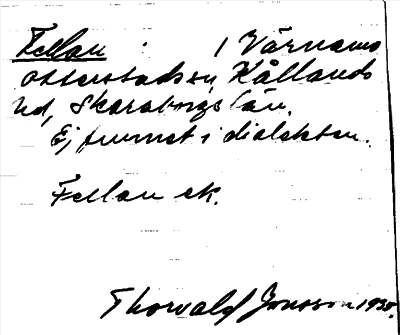 Fellan : 1 Värnams
Otterstads sn, Kållands
hd, Skaraborgs län.
Ej funnet i dialekten.
Fellan ek.
Thorvald Jonsson 1930.